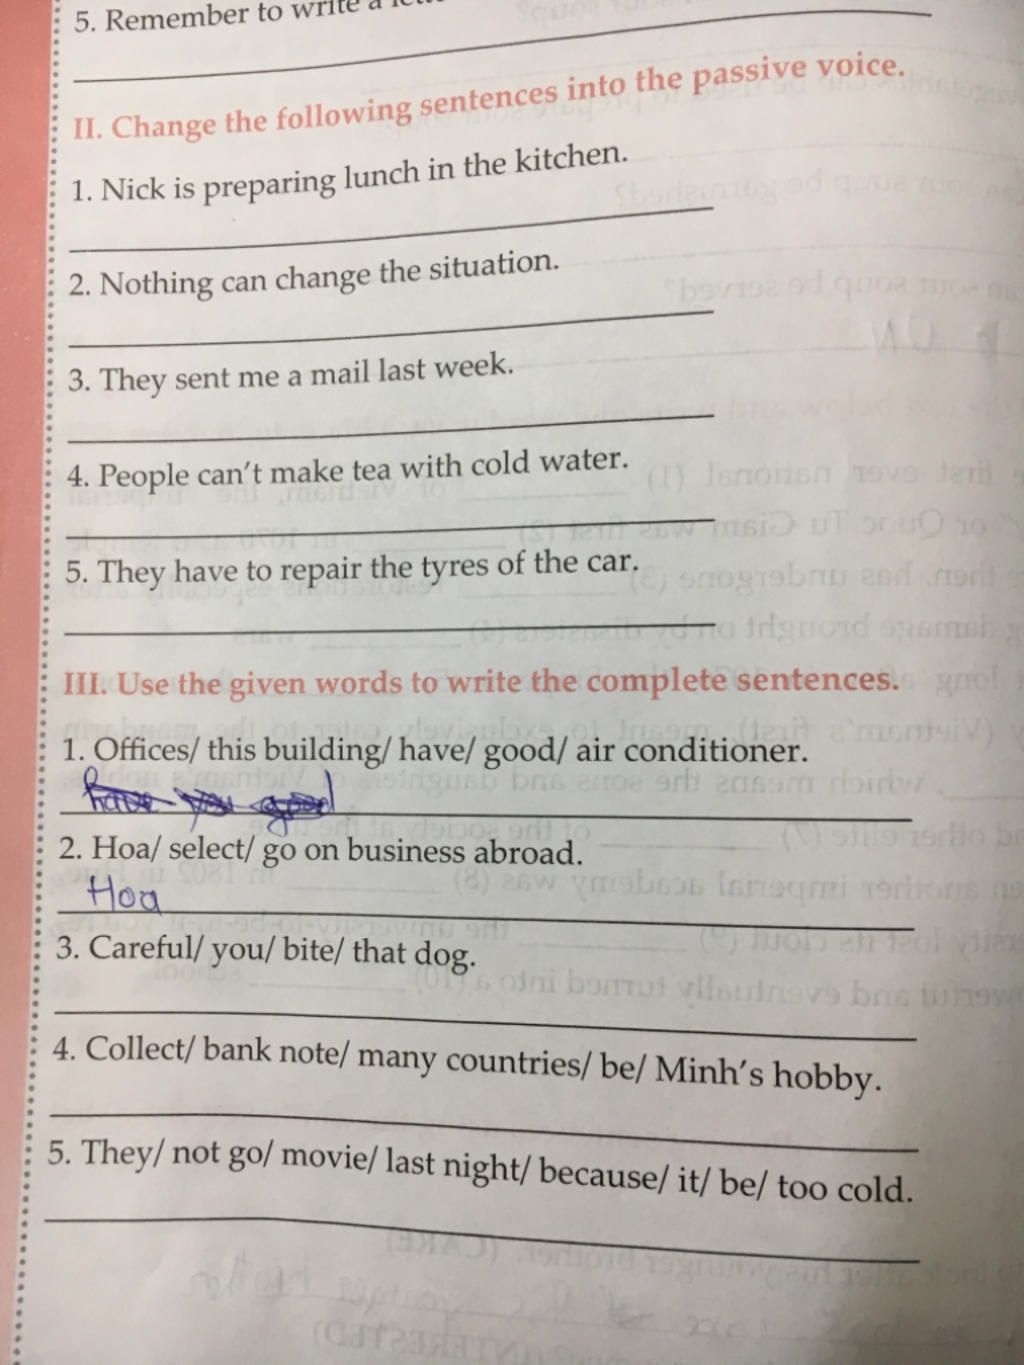 5. Remember to write a
II. Change the following sentences into the passive voice.
1. Nick is preparing lunch in the kitchen.
2. Nothing can change the situation.
3. They sent me a mail last week.
4. People can't make tea with cold water.
5. They have to repair the tyres of the car.
III. Use the given words to write the complete sentences.
1. Offices/ this building/ have/ good/ air conditioner.
have you good
2. Hoa/ select/ go on business abroad.
Hoa
3. Careful/ you/ bite/ that dog.
4. Collect/ bank note/ many countries/ be/ Minh's hobby.
5. They/ not go/ movie/ last night/ because/ it/ be/ too cold.